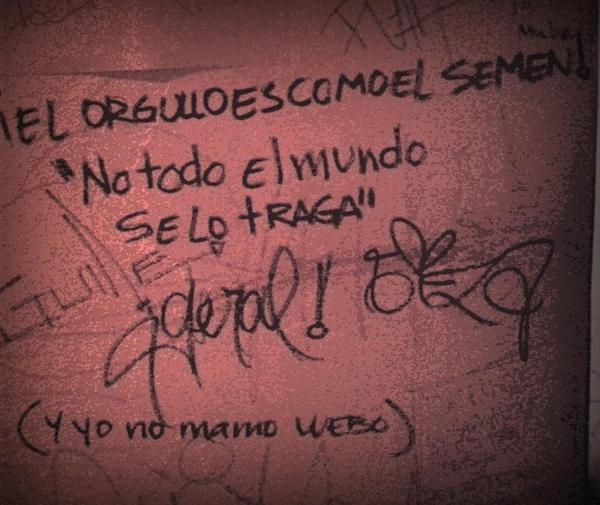 ¡EL ORGULLO ES COMO EL SEMEN!
"No todo El mundo
SE LO TRAGA"
¡deral!
(Y yo no mamo WEBO)